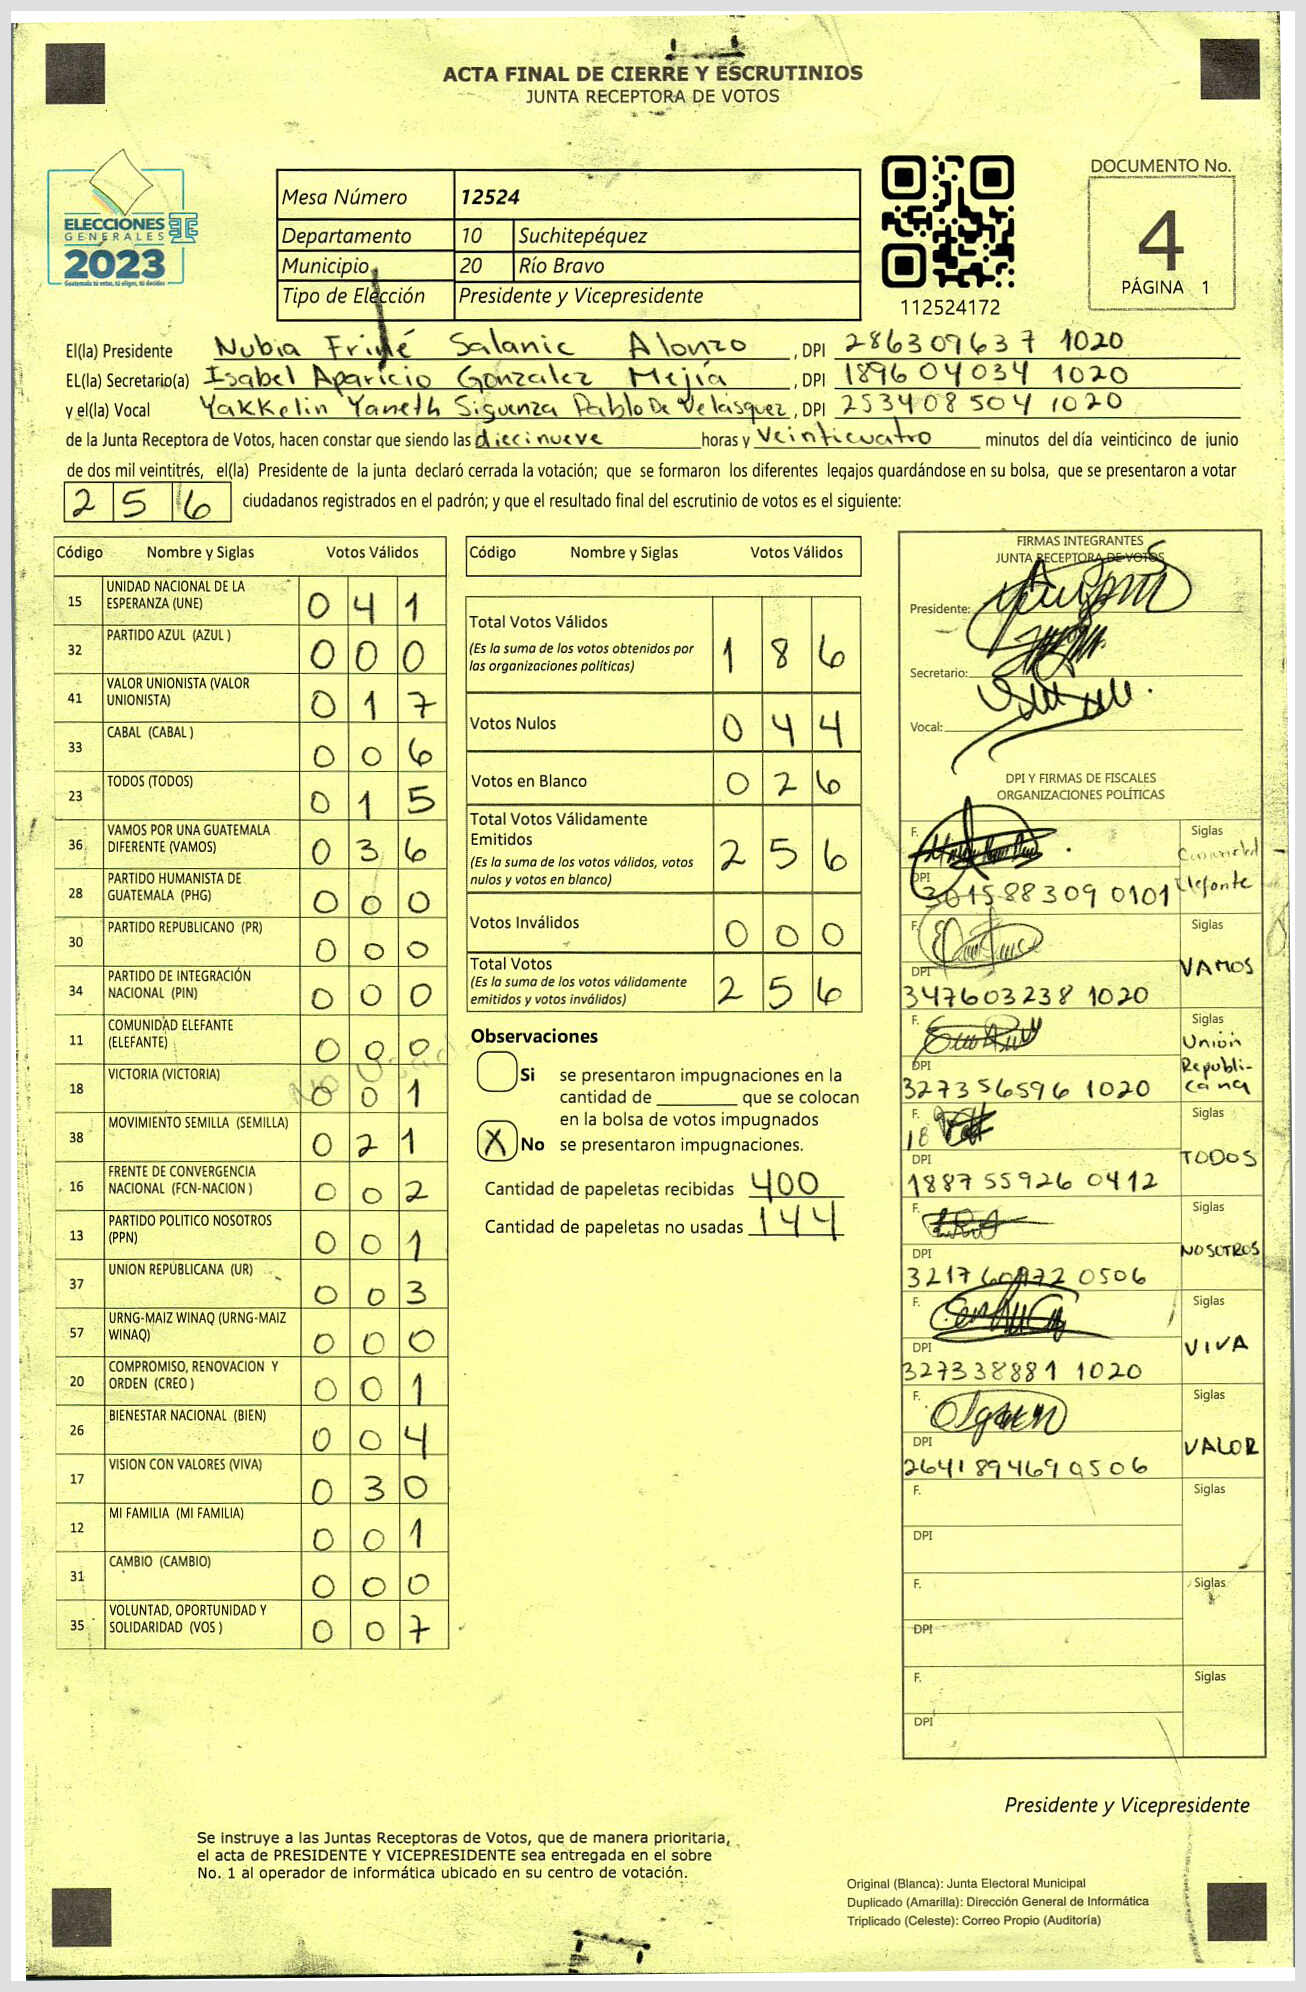 ACTA FINAL DE CIERRE Y ESCRUTINIOS
JUNTA RECEPTORA DE VOTOS
ELECCIONES
GENERALES
2023
Guatemala tú votas, tú eliges, tú decides
Mesa Número 12524
Departamento 10 Suchitepéquez
Municipio 20 Río Bravo
Tipo de Elección Presidente y Vicepresidente
112524172
DOCUMENTO No.
4
PÁGINA 1
El(la) Presidente Nubia Friné Salanic Alonzo, DPI 286309637 1020
EL(la) Secretario(a) Isabel Aparicio Gonzalez Mejía, DPI 189604034 1020
y el(la) Vocal Yakkelin Yaneth Siguenza Pablo De Velásquez, DPI 253408504 1020
de la Junta Receptora de Votos, hacen constar que siendo las diecinueve horas y veinticuatro minutos del día veinticinco de junio
de dos mil veintitrés, el(la) Presidente de la junta declaró cerrada la votación; que se formaron los diferentes legajos guardándose en su bolsa, que se presentaron a votar
256 ciudadanos registrados en el padrón; y que el resultado final del escrutinio de votos es el siguiente:
Código Nombre y Siglas Votos Válidos
15 UNIDAD NACIONAL DE LA ESPERANZA (UNE) 041
32 PARTIDO AZUL (AZUL ) 000
41 VALOR UNIONISTA (VALOR UNIONISTA) 017
33 CABAL (CABAL ) 006
23 TODOS (TODOS) 015
36 VAMOS POR UNA GUATEMALA DIFERENTE (VAMOS) 036
28 PARTIDO HUMANISTA DE GUATEMALA (PHG) 000
30 PARTIDO REPUBLICANO (PR) 000
34 PARTIDO DE INTEGRACIÓN NACIONAL (PIN) 000
11 COMUNIDAD ELEFANTE (ELEFANTE) 000
18 VICTORIA (VICTORIA) 001
38 MOVIMIENTO SEMILLA (SEMILLA) 021
16 FRENTE DE CONVERGENCIA NACIONAL (FCN-NACION ) 002
13 PARTIDO POLITICO NOSOTROS (PPN) 001
37 UNION REPUBLICANA (UR) 003
57 URNG-MAIZ WINAQ (URNG-MAIZ WINAQ) 000
20 COMPROMISO, RENOVACION Y ORDEN (CREO ) 001
26 BIENESTAR NACIONAL (BIEN) 004
17 VISION CON VALORES (VIVA) 030
12 MI FAMILIA (MI FAMILIA) 001
31 CAMBIO (CAMBIO) 000
35 VOLUNTAD, OPORTUNIDAD Y SOLIDARIDAD (VOS ) 007
Código Nombre y Siglas Votos Válidos
Total Votos Válidos 186
(Es la suma de los votos obtenidos por
las organizaciones políticas)
Votos Nulos 044
Votos en Blanco 026
Total Votos Válidamente
Emitidos 256
(Es la suma de los votos válidos, votos
nulos y votos en blanco)
Votos Inválidos 000
Total Votos 256
(Es la suma de los votos válidamente
emitidos y votos inválidos)
Observaciones
Si se presentaron impugnaciones en la
cantidad de ________ que se colocan
en la bolsa de votos impugnados
X No se presentaron impugnaciones.
Cantidad de papeletas recibidas 400
Cantidad de papeletas no usadas 144
FIRMAS INTEGRANTES
JUNTA RECEPTORA DE VOTOS
Presidente:
Secretario:
Vocal:
DPI Y FIRMAS DE FISCALES
ORGANIZACIONES POLÍTICAS
F. Siglas
DPI 301588309 0101 Comunidad Elefante
F. Siglas
DPI 347603238 1020 VAMOS
F. Siglas
DPI 327356596 1020 Unión Republi-cana
F. Siglas
DPI 188755926 0412 TODOS
F. Siglas
DPI 321760972 0506 NOSOTROS
F. Siglas
DPI 327338881 1020 VIVA
F. Siglas
DPI 264189469 0506 VALOR
F. Siglas
DPI
F. Siglas
DPI
F. Siglas
DPI
Presidente y Vicepresidente
Se instruye a las Juntas Receptoras de Votos, que de manera prioritaria,
el acta de PRESIDENTE Y VICEPRESIDENTE sea entregada en el sobre
No. 1 al operador de informática ubicado en su centro de votación.
Original (Blanca): Junta Electoral Municipal
Duplicado (Amarilla): Dirección General de Informática
Triplicado (Celeste): Correo Propio (Auditoría)